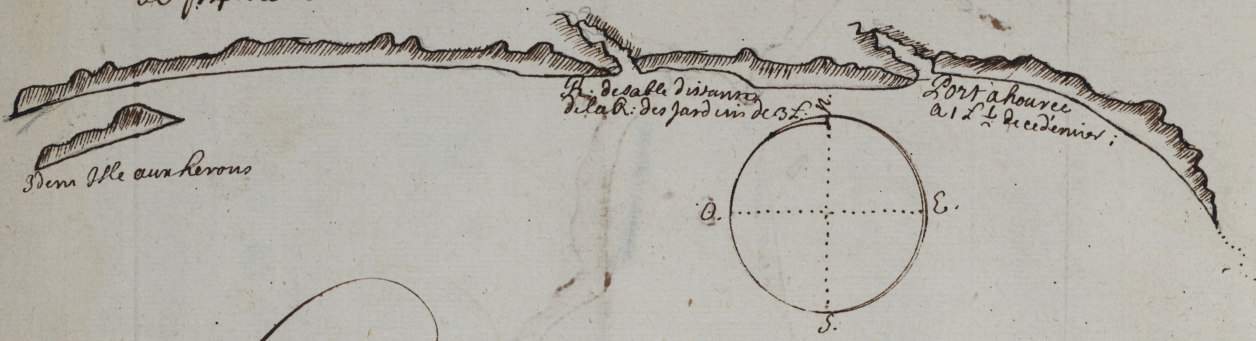 R: de sable distance
de la R: des Jardins de 3 L:
Port à houree
a 1 L 1/2 de ce dernier:
3 dem Isle aux herons
n.
O.
E.
S.